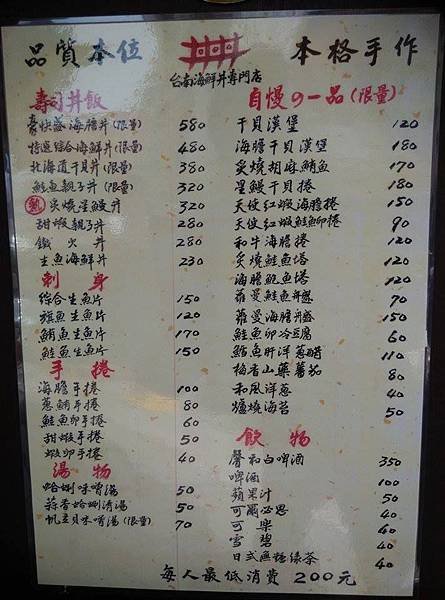 品質本位 丼丼丼 本格手作
台南海鮮丼專門店
壽司丼飯
豪快盛海膽丼(限量) 580
特選綜合海鮮丼(限量) 480
北海道干貝丼(限量) 380
鮭魚親子丼(限量) 320
熟 炙燒星鰻丼 320
甜蝦親子丼 280
鐵火丼 280
生魚海鮮丼 230
刺身
綜合生魚片 150
旗魚生魚片 120
鮪魚生魚片 170
鮭魚生魚片 150
手捲
海膽手捲 100
蔥鮪手捲 80
鮭魚卵手捲 60
甜蝦手捲 50
蝦卵手捲 40
湯物
蛤蜊味噌湯 50
蒜香蛤蜊清湯 50
帆立貝味噌湯(限量) 70
自慢の一品(限量)
干貝漢堡 120
海膽干貝漢堡 180
炙燒胡麻鮪魚 170
星鰻干貝捲 180
天使紅蝦海膽捲 150
天使紅蝦鮭魚卵捲 90
和牛海膽捲 120
炙燒鮭魚塔 120
海膽鮑魚塔 120
蘿曼鮭魚舟盤 70
蘿曼海膽舟盤 150
鮭魚卵冷豆腐 60
鮟魚肝洋蔥醋 110
梅香山藥蕃茄 80
和風洋蔥 40
爐燒海苔 50
飲物
馨和白啤酒 350
啤酒 100
蘋果汁 50
可爾必思 40
可樂 40
雪碧 40
日式無糖綠茶 40
每人最低消費 200元